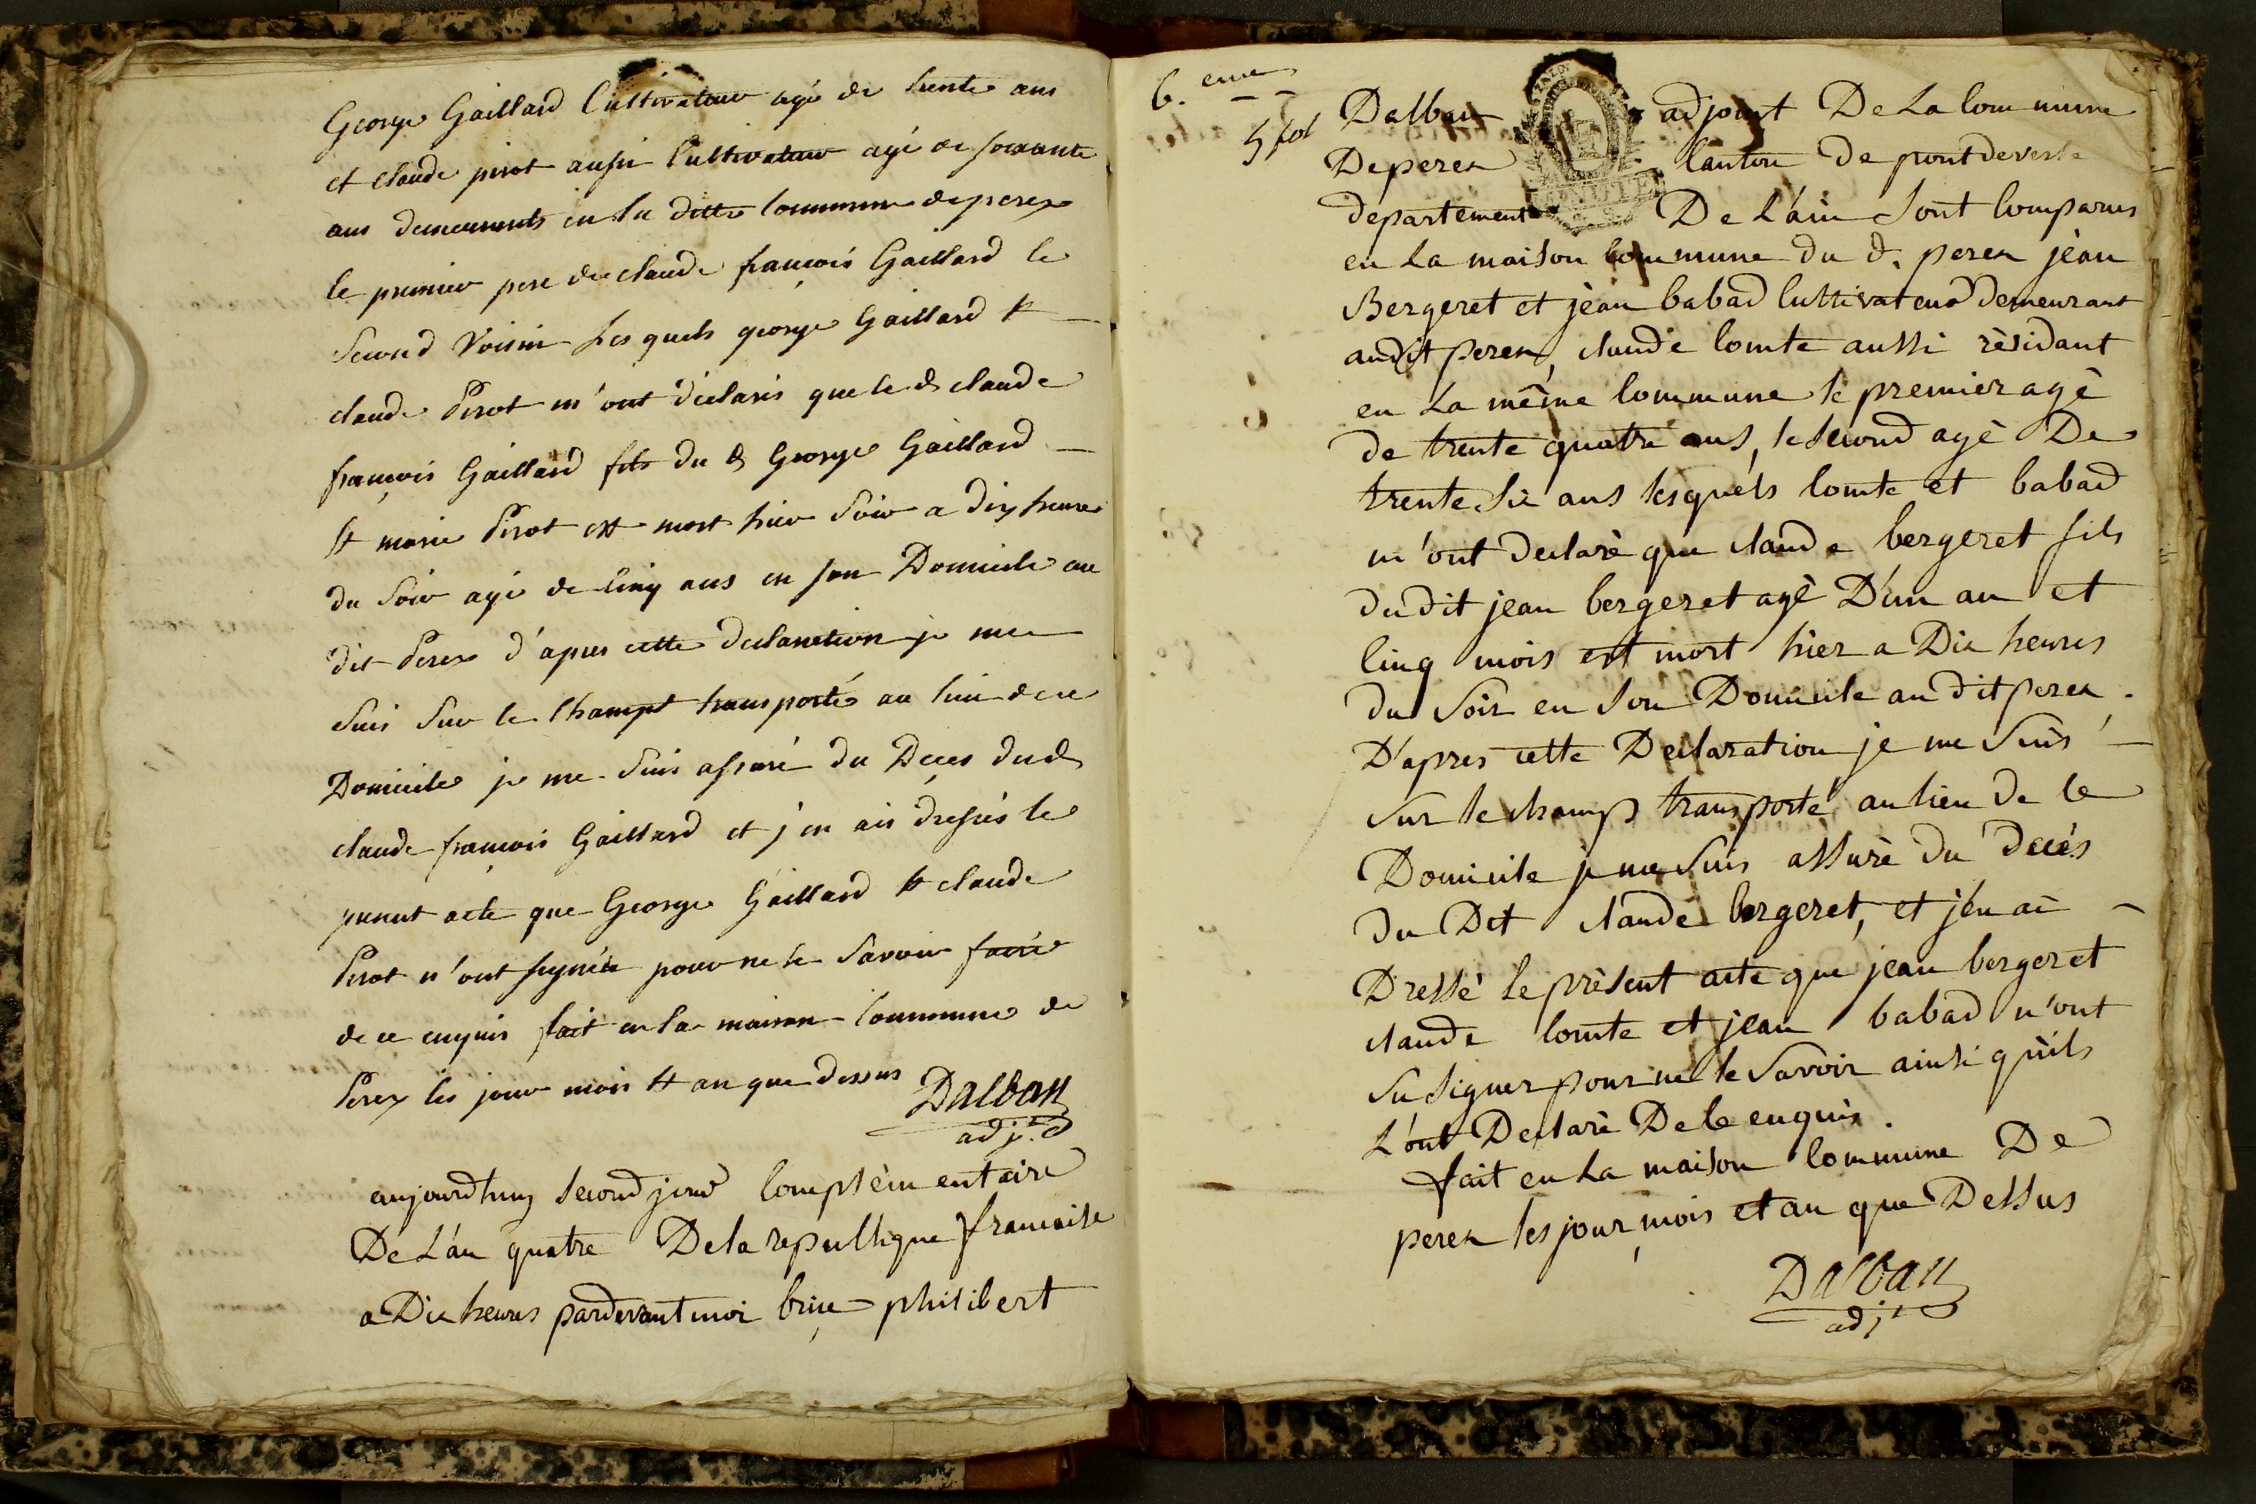 George Gaillard Cultivateur agé de trente ans
et claude pirot aussi Cultivateur agé de soixante
ans demeurants en la ditte Commune de perex
le premier pere de claude françois Gaillard le
Second Voisin Les quels george Gaillard et
claude Pirot m'ont déclarés que le d claude
françois Gaillard fils du d George Gaillard
et marie Pirot est mort hier Soir a dix heures
du Soir agé de Cinq ans en son Domicile au
dit Perex d'apres cette declaration je me
Suis Sur le Champt transportés au lieu de ce
Domicile je me Suis assuré du Deces dud
claude françois Gaillard et j'en ais dressés le
present acte que George Gaillard et claude
Pirot n'ont signés pour ne le Savoir faire
de ce enquis fait en la maison Commune de
Perex les jour mois et an que dessus
Dalban
adj.t
aujourdhuy second jour Complèmentaire
De L'an quatre De la republique francaise
a Dix heures pardevant moi brice philibert
6.eme
5 sol
Dalban adjoint De La Commune
De perex Canton de pontdevesle
departement De L'ain Sont Comparus
en La maison Commune du d. perex jèan
Bergeret et jèan babad Cultivateurs demeurant
audit perex, claude Comte aussi rèsidant
en La même Commune le premier agè
de trente quatre ans, le second agè De
trente Six ans lesquèls Comte et babad
m'ont declarè que claude bergeret fils
du dit jean bergeret agè D'un an et
Cinq mois est mort hier a Dix heures
du Soir en Son Domicile au dit perex.
D'apres cette Declaration je me Suis
Sur le champ transporté au lieu de Ce
Domicile je me Suis assurè du decés
du Dit claude bergeret, et j'en ai
Dressé le prèsent acte que jean bergeret
claude Comte et jean babad n'ont
Su Signer pour ne le Savoir ainsi qu'ils
L'ont Declarè De Ce enquis.
fait en La maison Commune De
perex les jour, mois et an que Dessus
Dalban
adj.t